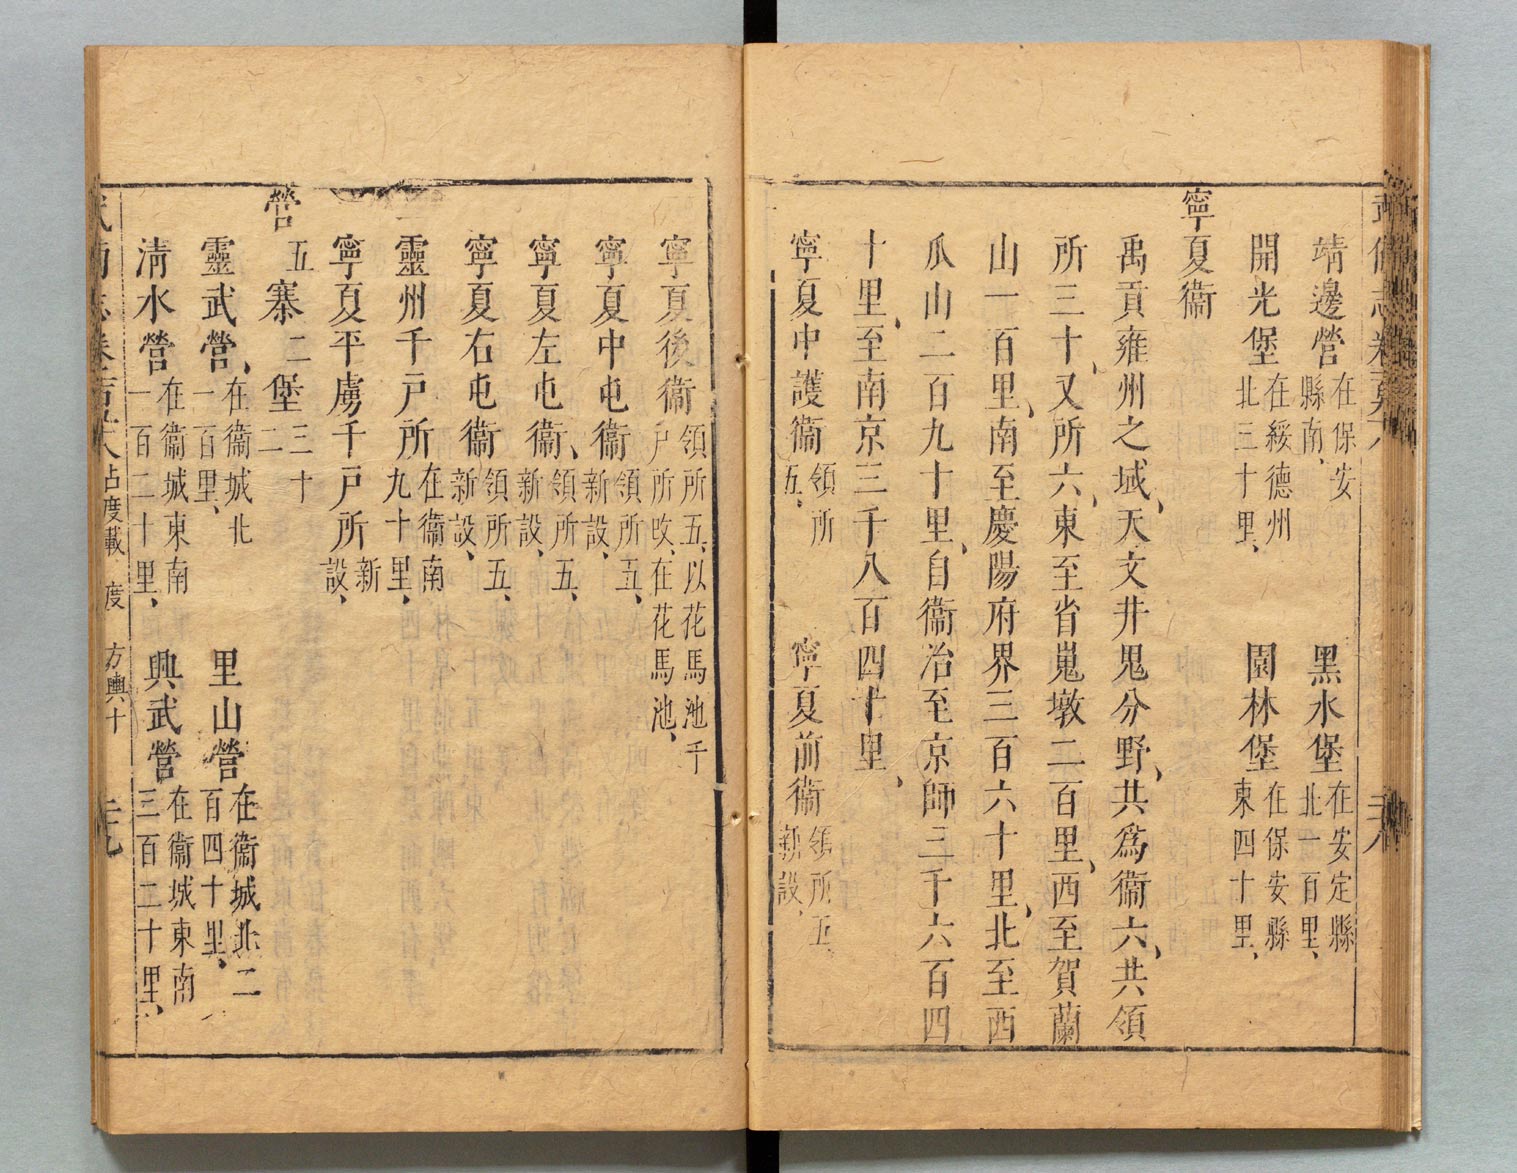 靖邊營在保安縣南、 黑水堡在安定縣北一百里、
開光堡在綏德州北三十里、 園林堡在保安縣東四十里、
寧夏衞
禹貢雍州之域、天文井鬼分野、共爲衞六、共領
所三十、又所六、東至省嵬墩二百里、西至賀蘭
山一百里、南至慶陽府界三百六十里、北至西
瓜山二百九十里、自衞治至京師三千六百四
十里、至南京三千八百四十里、
寧夏中護衞領所五、 寧夏前衞領所五新設、
寧夏後衞領所五、以花馬池千戸所改、在花馬池、
寧夏中屯衞領所五、新設、
寧夏左屯衞、領所五、新設、
寧夏右屯衞領所五、新設、
靈州千戸所在衞南九十里、
寧夏平虜千戸所新設、
營五寨二堡三十二
靈武營、在衞城北一百里、 里山營在衞城北二百四十里、
淸水營在衞城東南一百二十里、 興武營在衞城東南三百二十里、
方輿十